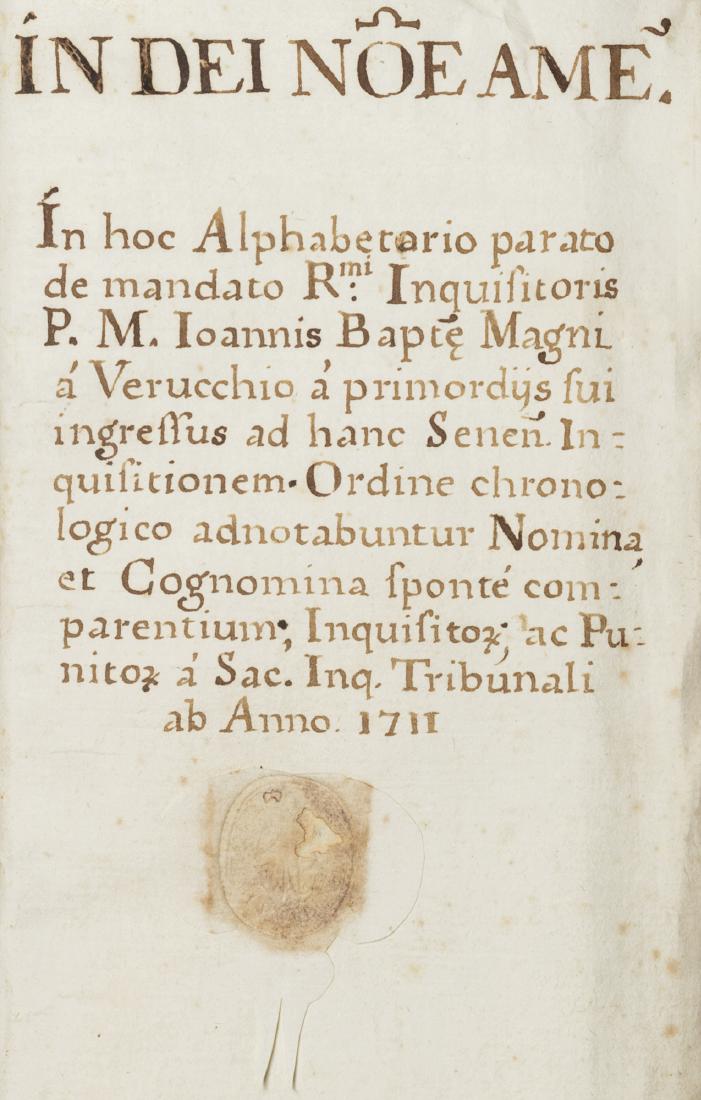 ÍN DEI NÕE AMẼ.
Ín hoc Alphabetario parato
de mandato R:ᵐⁱ Inquiſitoris
P. M. Ioannis Bapt̃ę Magni
á Verucchio á primordijs ſui
ingreſſus ad hanc Seneñ. In=
quiſitionem. Ordine chrono=
logico adnotabuntur Nomina,
et Cognomina ſponté com=
parentium; Inquiſitoꝝ; ac Pu=
nitoꝝ á Sac. Inq. Tribunali
ab Anno. 1711